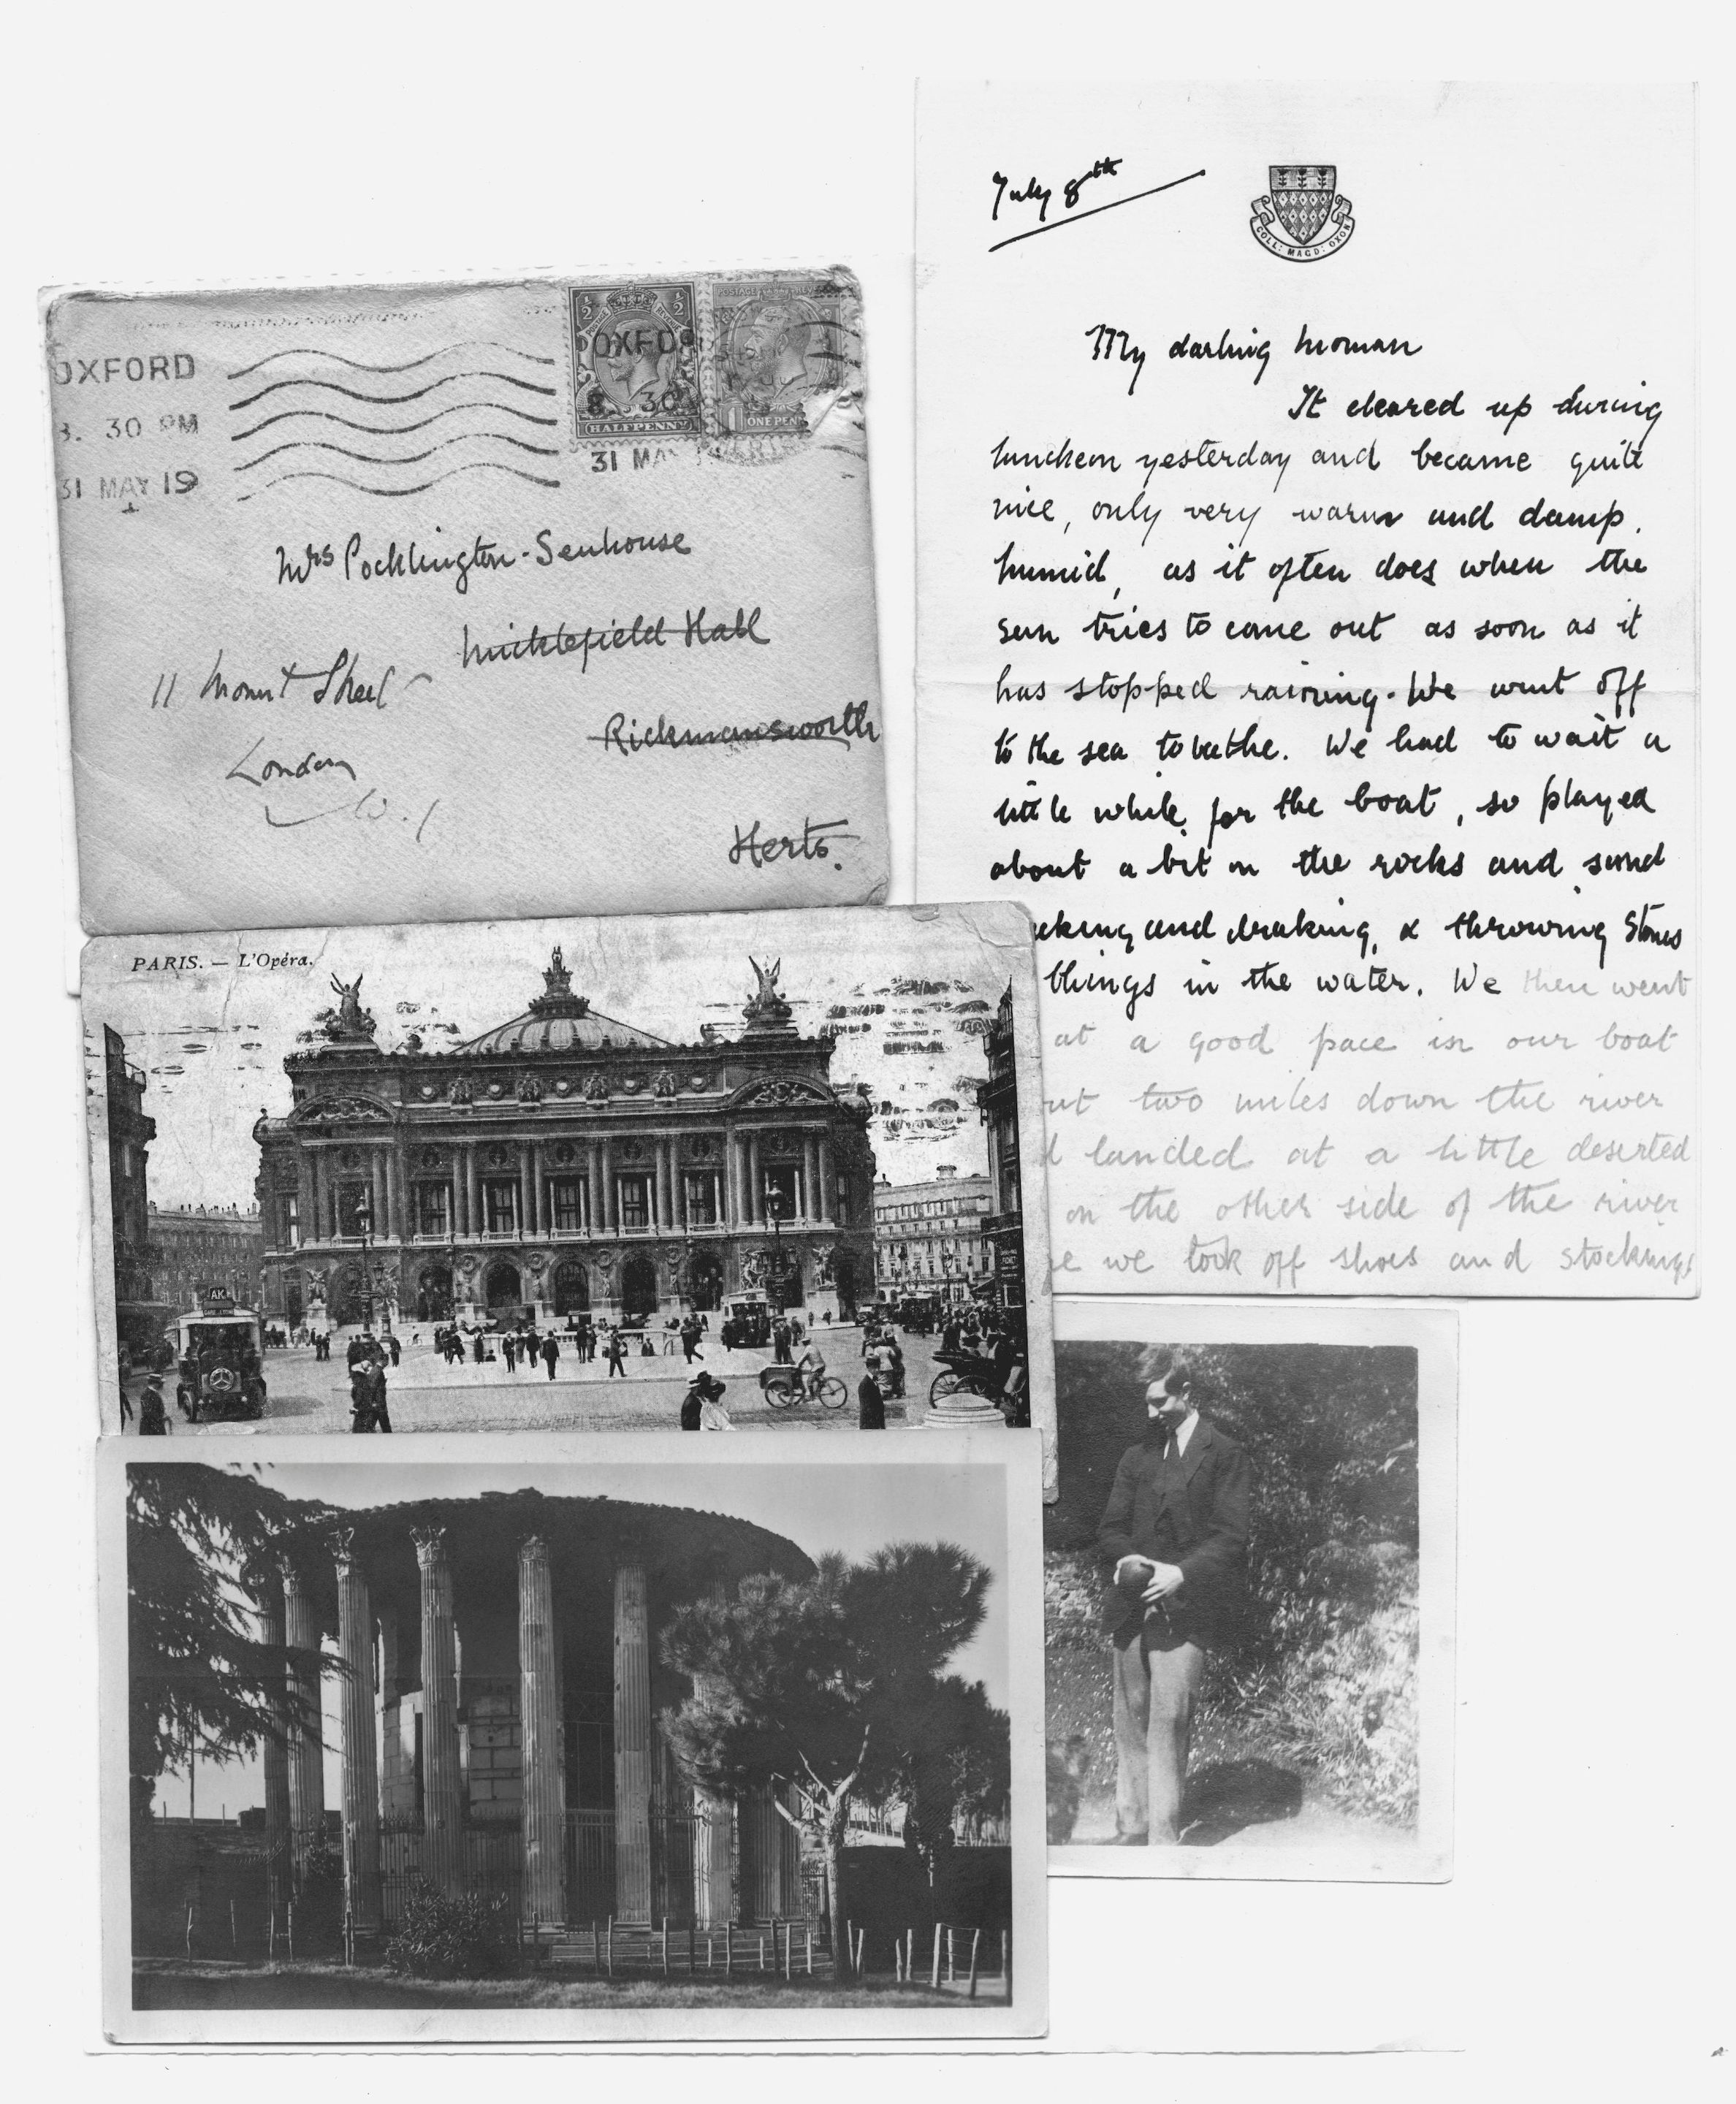 OXFORD
30 PM
31 MAY 19
½ ½
POSTAGE REVENUE
OXFD
8. 30
HALFPENNY
POSTAGE
1 ONE PEN
31 MAY
Mrs Pocklington-Senhouse
Micklefield Hall
11 Mount Street
Rickmansworth
London
W.1
Herts.
July 8th
COLL: MAGD: OXON
My darling
It cleared up during
luncheon yesterday and became quite
nice, only very warm and damp.
humid, as it often does when the
sun tries to come out as soon as it
has stopped raining. We went off
to the sea to bathe. We had to wait a
little while for the boat, so played
about a bit on the rocks and sand
and & throwing stones
things in the water. We then went
at a good pace in our boat
two miles down the river
landed at a little deserted
on the other side of the river
we took off shoes and stockings
PARIS. — L'Opéra.
AK